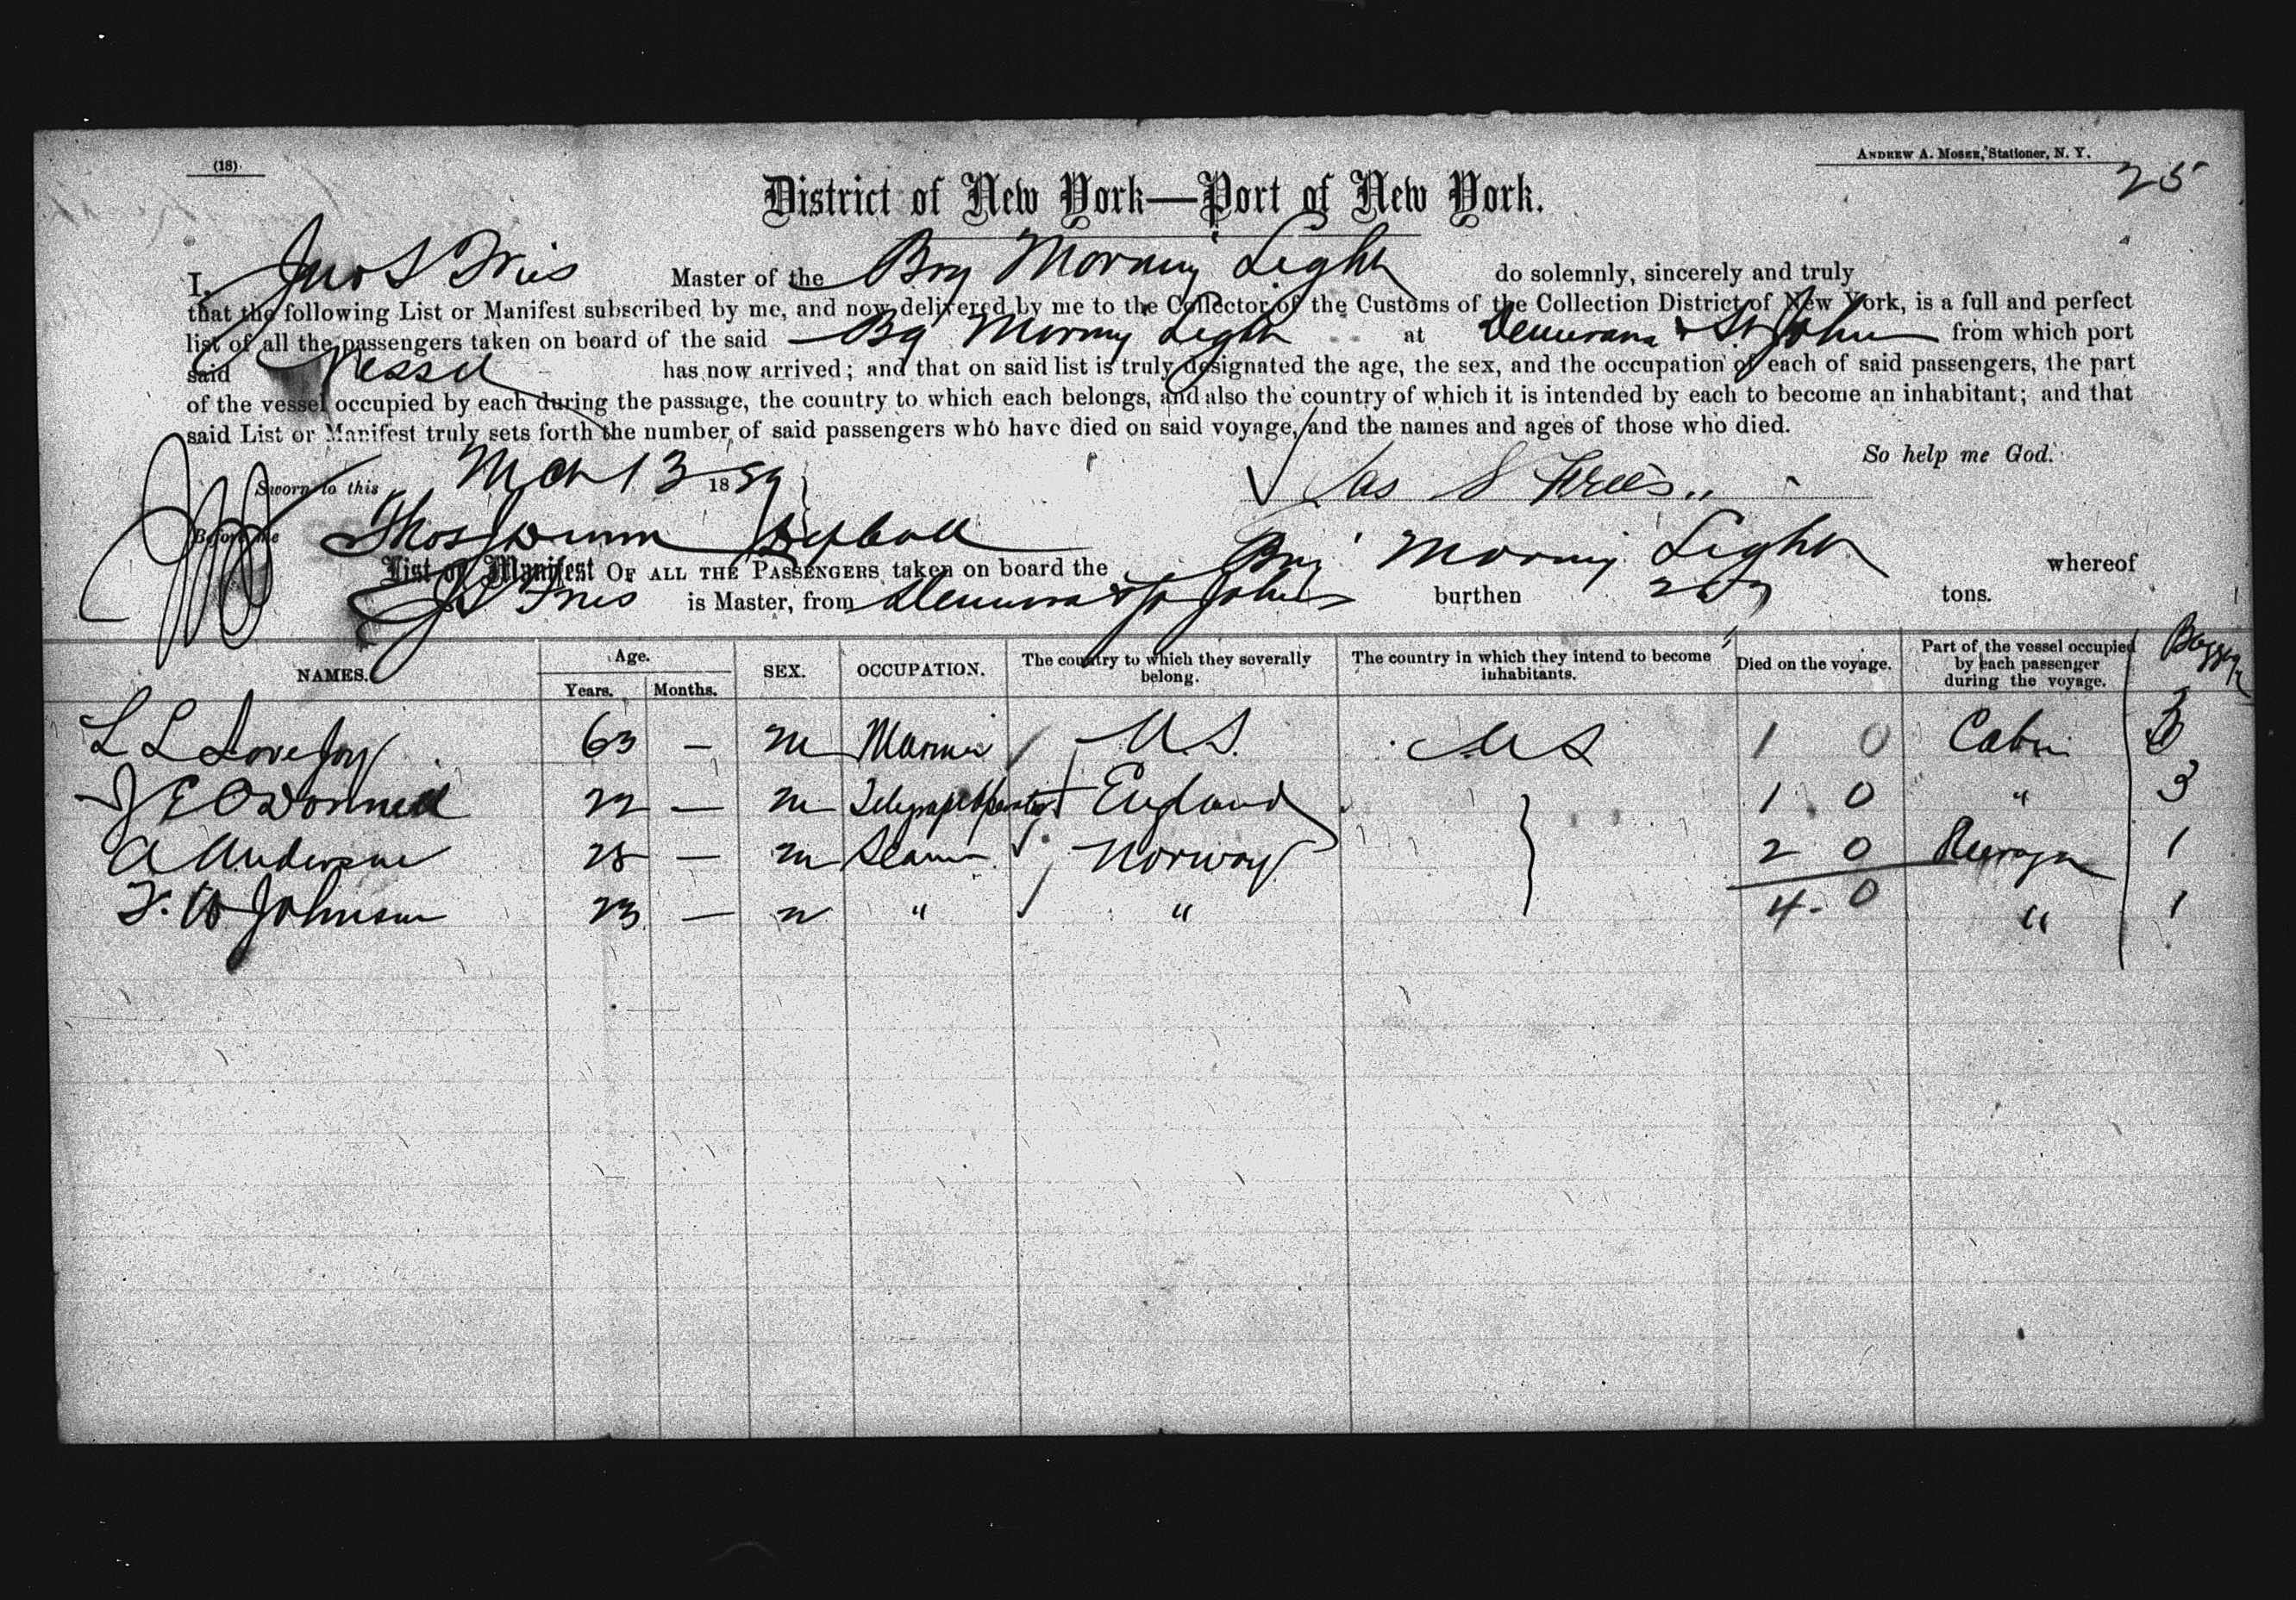 (18)
ANDREW A. MOSER, Stationer, N. Y.
25
District of New York—Port of New York.
I, Master of the Brg Morning Light do solemnly, sincerely and truly
that the following List or Manifest subscribed by me, and now delivered by me to the Collector of the Customs of the Collection District of New York, is a full and perfect
list of all the passengers taken on board of the said Bg Morning Light at Demerara & St John from which port
said Vessel has now arrived; and that on said list is truly designated the age, the sex, and the occupation of each of said passengers, the part
of the vessel occupied by each during the passage, the country to which each belongs, and also the country of which it is intended by each to become an inhabitant; and that
said List or Manifest truly sets forth the number of said passengers who have died on said voyage, and the names and ages of those who died.
So help me God.
Sworn to this Mch 13 1889
Jas S
Before me Thos Dunn
List or Manifest OF ALL THE PASSENGERS taken on board the Brig Morning Light whereof
is Master, from Demerara & St Johns burthen tons.
NAMES. Age. Years. Months. SEX. OCCUPATION. The country to which they severally belong. The country in which they intend to become inhabitants. Died on the voyage. Part of the vessel occupied by each passenger during the voyage. Baggage
L L Lovejoy 63 — m Mariner U.S. U S 1 0 Cabin 3
J E O'Donnell 22 — m Telegraph Operator England 1 0 " 3
A Anderson 28 — m Seaman Norway 2 0 Steerage 1
F. W Johnson 23 — m " " 4 - 0 " 1